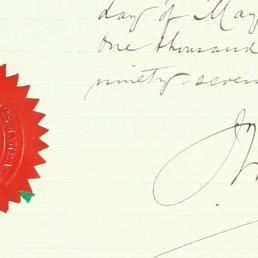 day of May
One thousand
ninety-seven